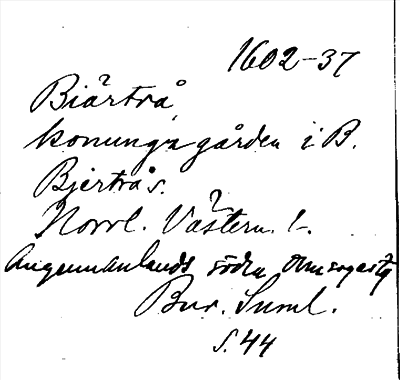 1602-37
Biärtrå
konunga gården i B.
Bjertrå s.
Norrl. Västern. l.
Ångermanlands södra
Bur. Suml.
s. 44